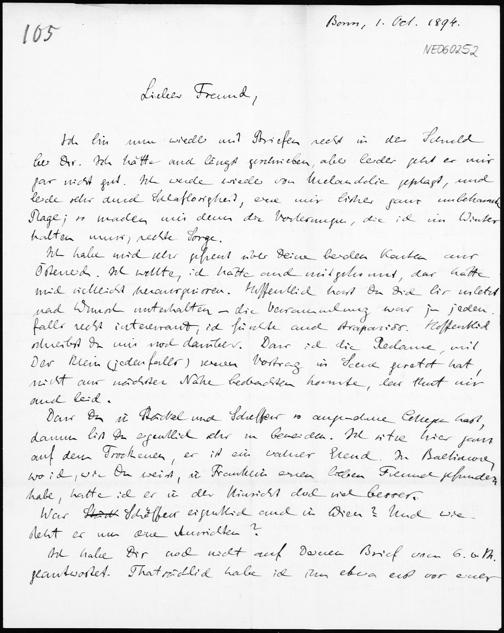 105
Bonn, 1. Oct. 1894.
NE060252
Lieber Freund,
Ich bin nun wieder mit Briefen recht in der Schuld
bei Dir. Ich hätte auch längst geschrieben, aber leider geht es mir
gar nicht gut. Ich werde wieder von Melancholie geplagt, und
leide sehr durch Schlaflosigkeit, eine mir bisher ganz unbekannte
Plage; so machen mir denn die Vorlesungen, die ich im Winter
halten muss, rechte Sorge.
Ich habe mich sehr gefreut über Deine beiden Karten aus
Österreich. Ich wollte, ich hätte auch mitgekonnt, das hätte
mich vielleicht herausgerissen. Hoffentlich hast Du Dich bis zuletzt
nach Wunsch unterhalten – die Versammlung war ja jeden-
falls recht interessant, ich fürchte auch strapaziös. Hoffentlich
schreibst Du mir noch darüber. Dass ich die Reclame, mit
der Klein (jedenfalls) seinen Vortrag in Scene gesetzt hat,
nicht aus nächster Nähe beobachten konnte, das thut mir
auch leid.
Dass Du in Stäckel und Scheffers so angenehme Collegen hast,
darum bist Du eigentlich sehr zu beneiden. Ich sitze hier ganz
auf dem Trockenen, es ist ein wahres Elend. In Baltimore,
wo ich, wie Du weisst, in Franklin einen lieben Freund gefunden
habe, hatte ich es in der Hinsicht doch viel besser.
War Scheffers eigentlich auch in Wien? Und wie
steht es um seine Aussichten?
Ich habe Dir noch nicht auf Deinen Brief vom 6. v. M.
geantwortet. Thatsächlich habe ich ihn etwa erst vor einer